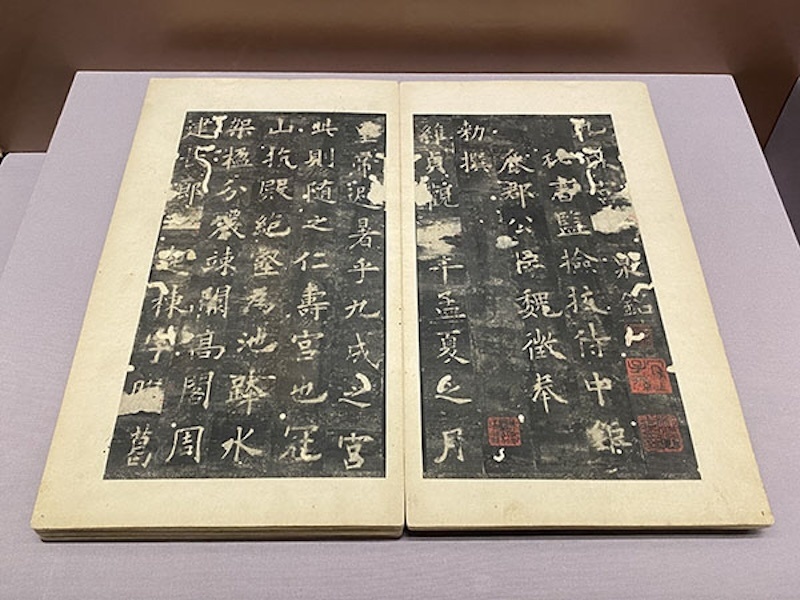 九宮泉銘
秘書監撿挍侍中鉅
鹿郡公臣魏徵奉
勑撰
維貞觀年孟夏之月
皇帝避暑乎九成之宮
此則隨之仁壽宮也冠
山抗殿絕壑為池跨水
架楹分巖竦闕高閣周
建廊起棟宇膠葛